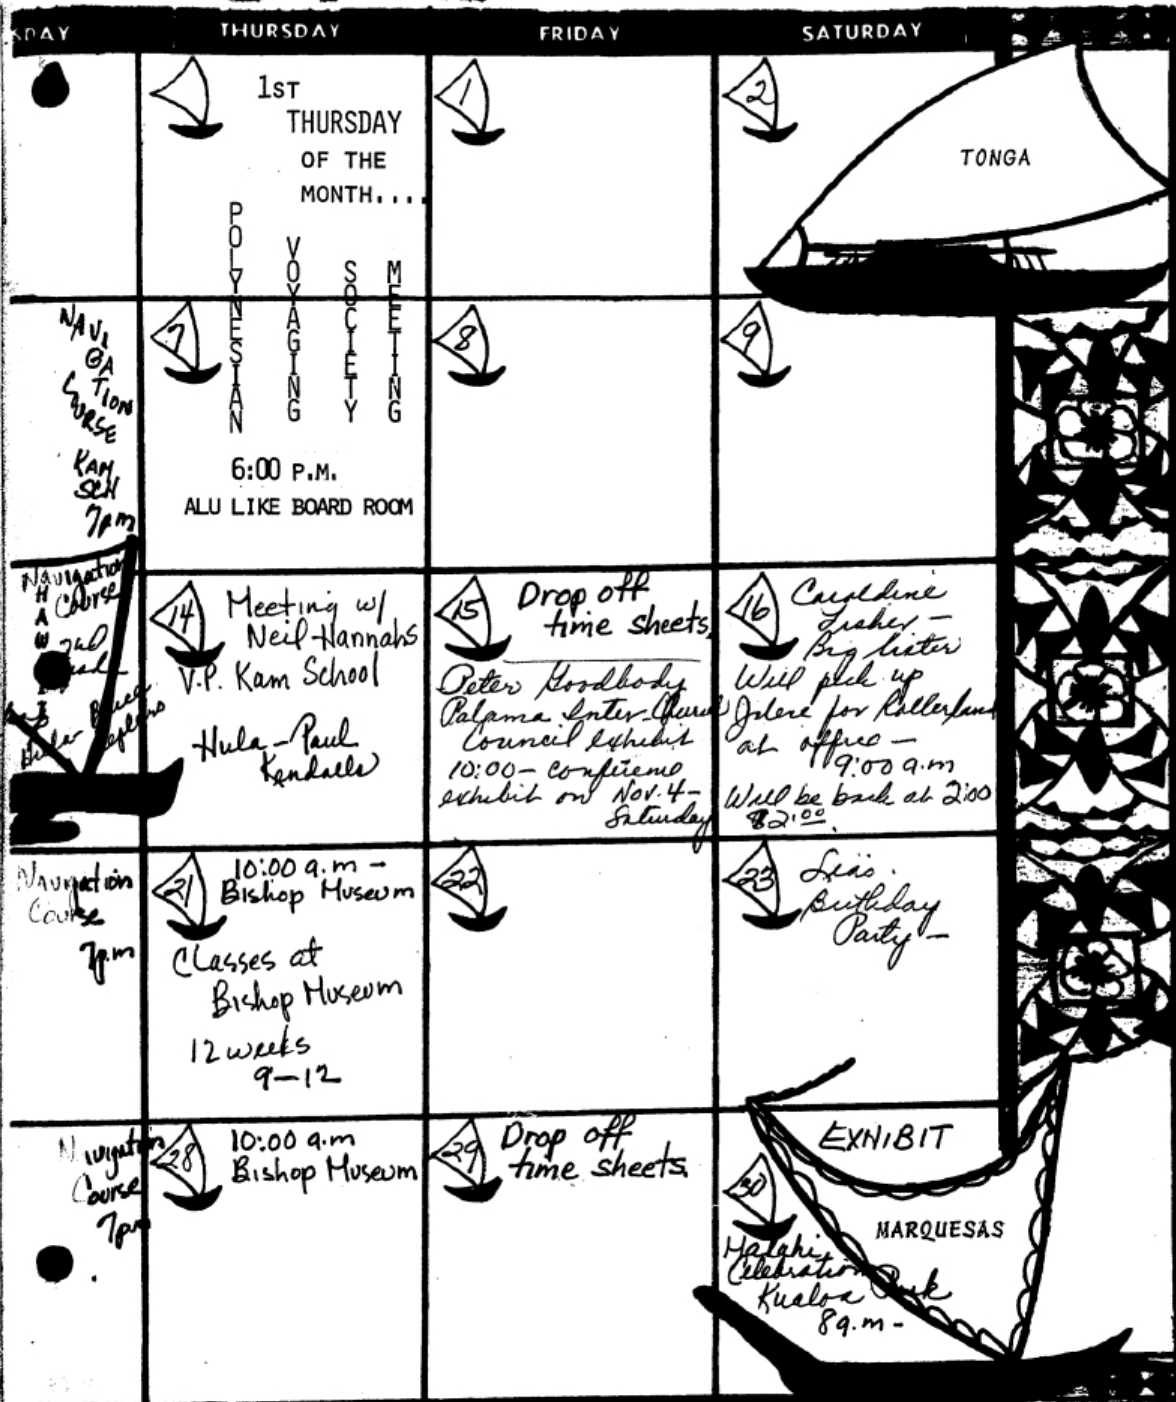 THURSDAY
FRIDAY
SATURDAY
1ST
THURSDAY
OF THE
MONTH....
POLYNESIAN
VOYAGING
SOCIETY
MEETING
6:00 P.M.
ALU LIKE BOARD ROOM
1
2
TONGA
NAVI
GA
TION
COURSE
KAM
SCH
7pm
7
8
9
Navigation
Course
HAWAII
Hula
14
Meeting w/
Neil Hannahs
V.P. Kam School
Hula - Paul
Kendalls
15
Drop off
time sheets.
Peter Goodbody
Palama Inter-Church
Council exhibit
10:00 - confirm
exhibit on Nov. 4 -
Saturday
16
Fisher -
Big Sister
Will pick up
for Rollerland
at office -
9:00 a.m
Will be back at 2:00
$2.00
Navigation
Course
7p.m
21
10:00 a.m -
Bishop Museum
Classes at
Bishop Museum
12 weeks
9-12
22
23
Birthday
Party -
Navigation
Course
7pm
28
10:00 a.m
Bishop Museum
29
Drop off
time sheets.
EXHIBIT
30
MARQUESAS
Celebration
Kualoa Park
8a.m -